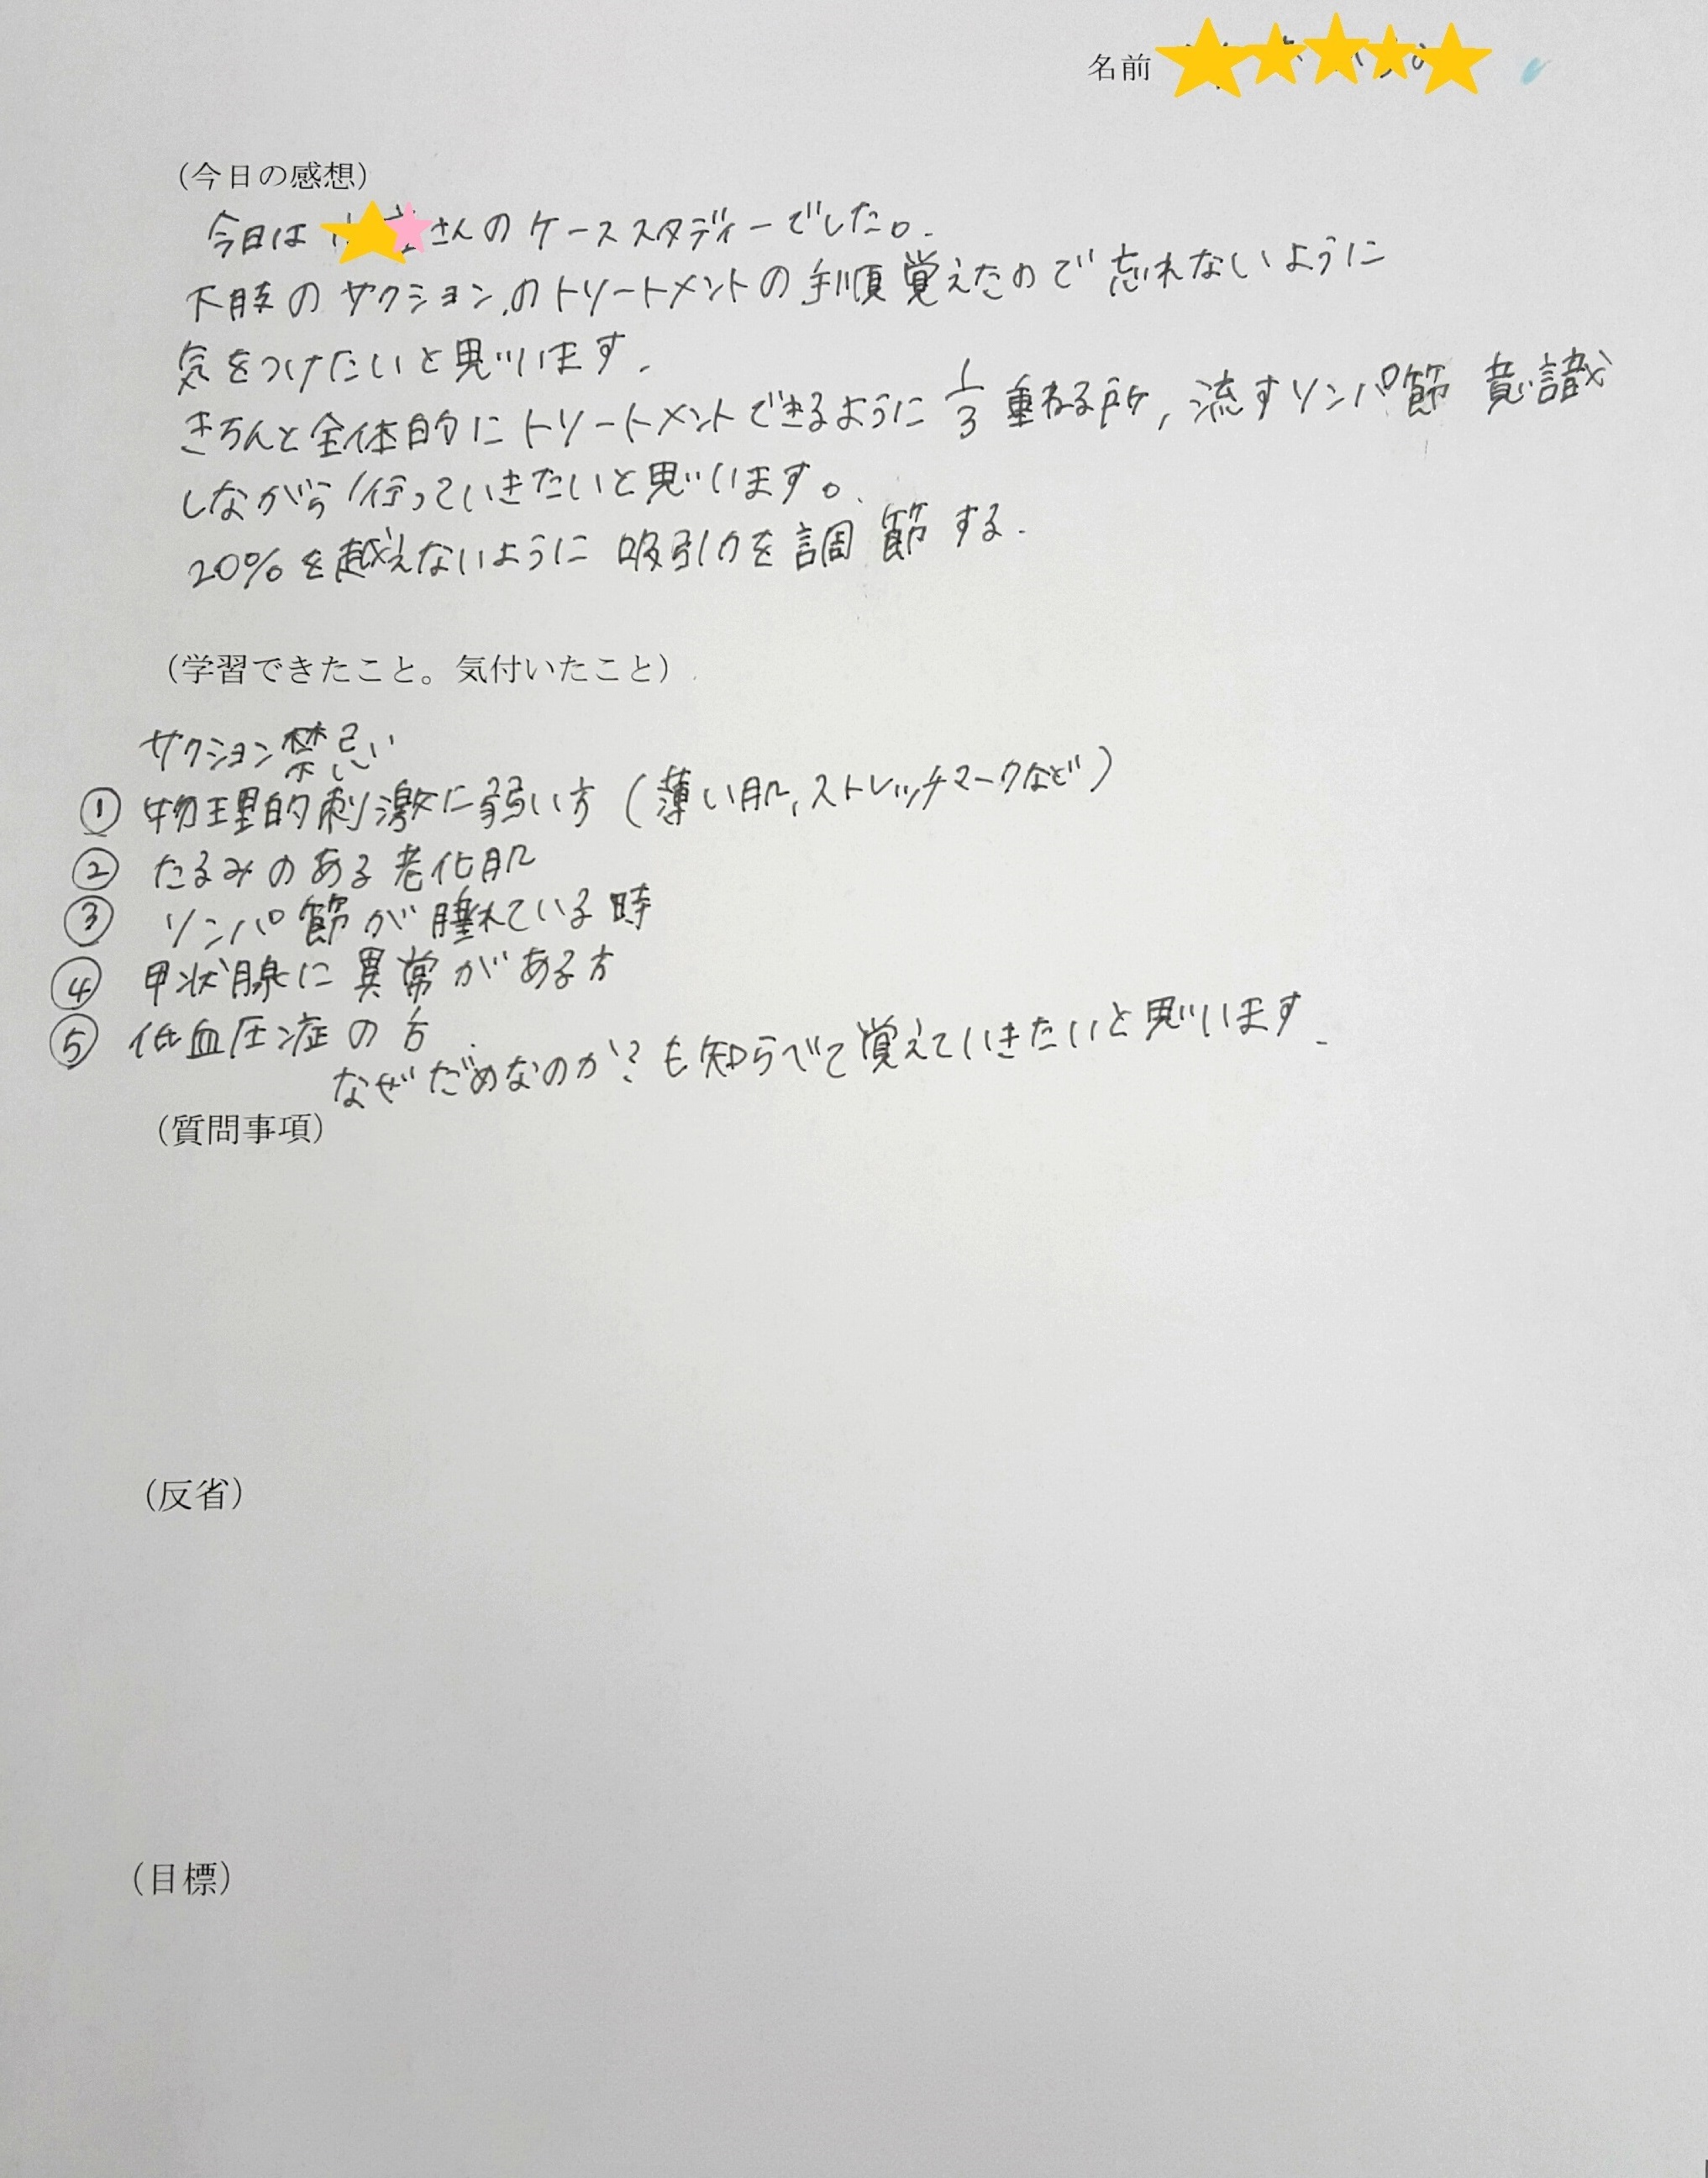 名前
（今日の感想）
今日は さんのケーススタディーでした。
下肢のサクションのトリートメントの手順覚えたので忘れないように
気をつけたいと思います.
きちんと全体的にトリートメントできるように 1/3 重ねる所, 流すリンパ節 意識
しながら行っていきたいと思います。
20%を越えないように 吸引力を調節する.
（学習できたこと。気付いたこと）
サクション禁忌い
① 物理的刺激に弱い方（薄い肌, ストレッチマークなど）
② たるみのある老化肌
③ リンパ節が腫れている時
④ 甲状腺に異常がある方
⑤ 低血圧症の方
なぜだめなのか？も知らべて覚えていきたいと思います.
（質問事項）
（反省）
（目標）